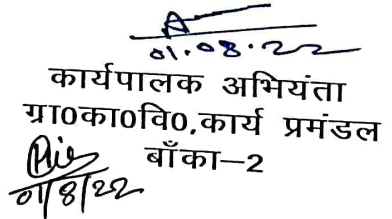 01.08.22
कार्यपालक अभियंता
ग्रा0का0वि0,कार्य प्रमंडल
बाँका–2
01/8/22